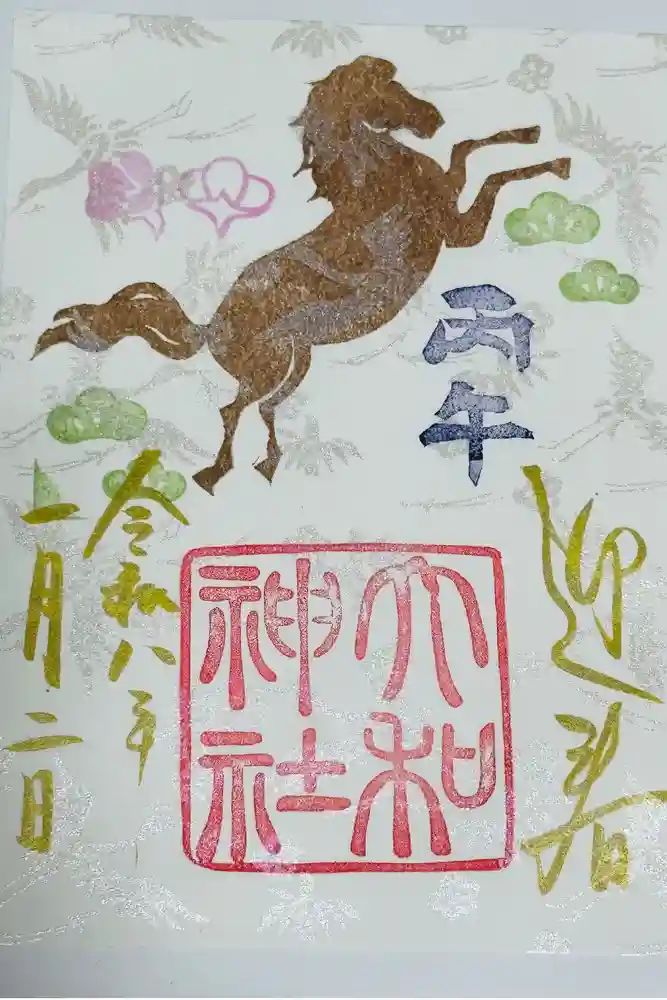 丙午
迎春
大和
神社
令和八年
一月二日